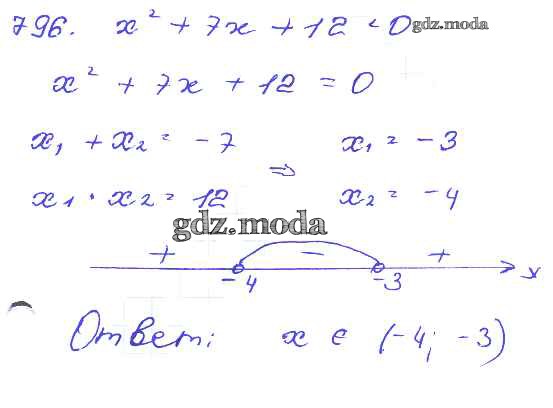 796. x² + 7x + 12 < 0 gdz.moda
x² + 7x + 12 = 0
x₁ + x₂ = -7 x₁ = -3
⇒
x₁ · x₂ = 12 x₂ = -4
gdz.moda
+ - +
-4 -3 x
Ответ: x ∈ (-4; -3)